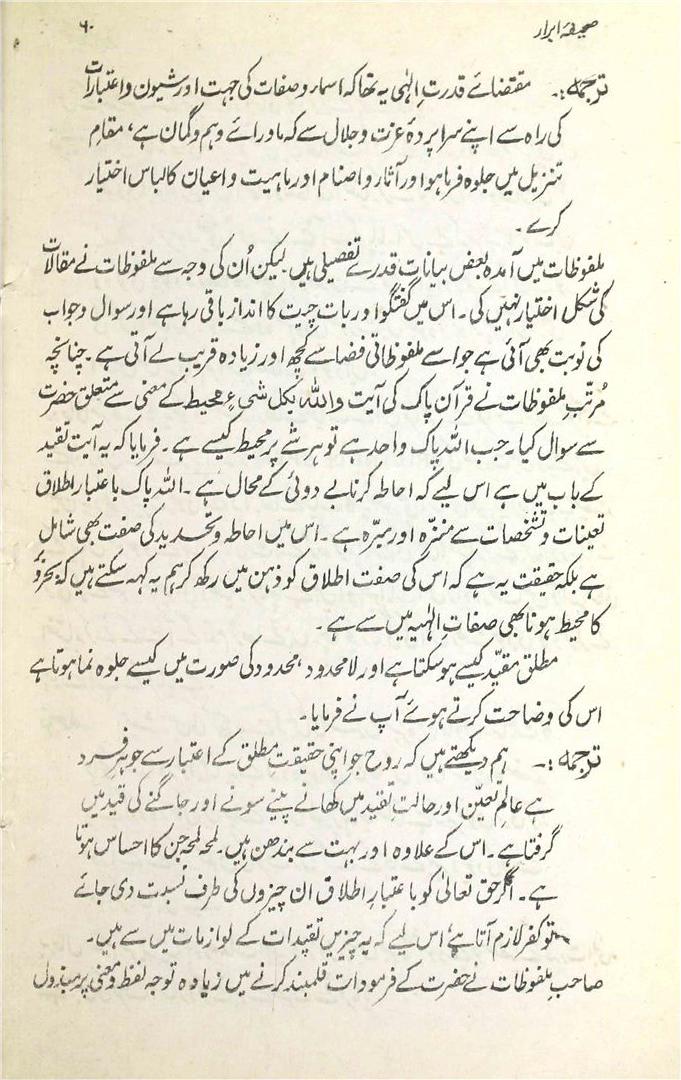 صحیفۂ ابرار ۶۰
ترجمہ :۔ مقتضائے قدرتِ الٰہی یہ تھا کہ اسماء و صفات کی جہت اور شیون و اعتبارات
کی راہ سے اپنے سراپردۂ عزت و جلال سے کہ ماورائے وہم و گمان ہے، مقامِ
تنزیل میں جلوہ فرما ہو اور آثار و اصنام اور ماہیت و اعیان کا لباس اختیار
کرے ۔
ملفوظات میں آمدہ بعض بیانات قدرے تفصیلی ہیں لیکن اُن کی وجہ سے ملفوظات نے مقالات
کی شکل اختیار نہیں کی۔ اس میں گفتگو اور بات چیت کا انداز باقی رہا ہے اور سوال و جواب
کی نوبت بھی آئی ہے جو اسے ملفوظاتی فضا سے کچھ اور زیادہ قریب لے آتی ہے ۔ چنانچہ
مُرتّبِ ملفوظات نے قرآن پاک کی آیت واللہ بکل شیءٍ محیط کے معنی سے متعلق حضرت
سے سوال کیا۔ جب اللہ پاک واحد ہے تو ہر شے پر محیط کیسے ہے ۔ فرمایا کہ یہ آیت تقید
کے باب میں ہے اس لیے کہ احاطہ کرنا بے دوئی کے محال ہے ۔ اللہ پاک باعتبار اطلاق
تعینات و تشخصات سے منزّہ اور مبرّہ ہے ۔ اس میں احاطہ و تحدید کی صفت بھی شامل
ہے بلکہ حقیقت یہ ہے کہ اس کی صفت اطلاق کو ذہن میں رکھ کر ہم یہ کہہ سکتے ہیں کہ بحروُ
کا محیط ہونا بھی صفاتِ الٰہیہ میں سے ہے ۔
مطلق مقیّد کیسے ہو سکتا ہے اور لامحدود، محدود کی صورت میں کیسے جلوہ نما ہوتا ہے
اس کی وضاحت کرتے ہوئے آپ نے فرمایا۔
ترجمہ :۔ ہم دیکھتے ہیں کہ روح جو اپنی حقیقتِ مطلق کے اعتبار سے جوہرِ فرد
ہے عالمِ تعیّن اور حالتِ تقید میں کھانے پینے سونے اور جاگنے کی قید میں
گرفتا ہے ۔ اس کے علاوہ اور بہت سے بندھن ہیں۔ لمحہ لمحہ جن کا احساس ہوتا
ہے ۔ اگر حق تعالیٰ کو باعتبارِ اطلاق ان چیزوں کی طرف نسبت دی جائے
تو کفر لازم آتا ہے، اس لیے کہ یہ چیزیں تقیدات کے لوازمات میں سے ہیں۔
صاحبِ ملفوظات نے حضرت کے فرمودات قلمبند کرنے میں زیادہ توجہ لفظ و معنی پر مبذول